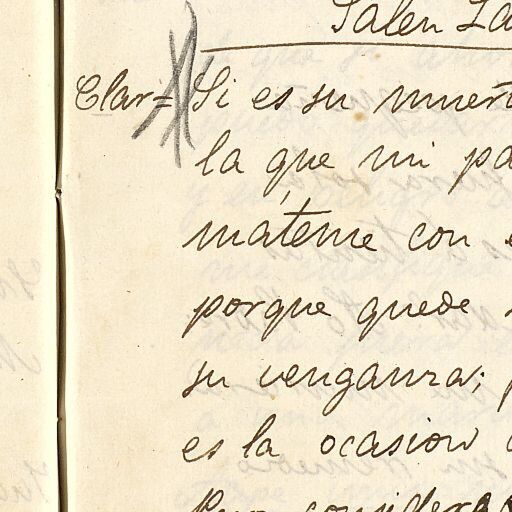 Salen La
Clar= Si es su muert
la que mi pa
máteme con e
porque quede
su venganza; p
es la ocasion
Pero considera